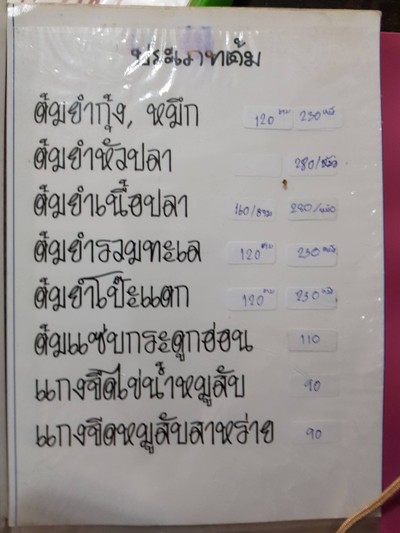 ประเภทต้ม
ต้มยำกุ้ง, หมึก 120 ชาม 230 หม้อ
ต้มยำหัวปลา 280/หม้อ
ต้มยำเนื้อปลา 160/ชาม 280/หม้อ
ต้มยำรวมทะเล 120 ชาม 230 หม้อ
ต้มยำโป๊ะแตก 120 ชาม 230 หม้อ
ต้มแซ่บกระดูกอ่อน 110
แกงจืดไข่น้ำหมูสับ 90
แกงจืดหมูสับสาหร่าย 90